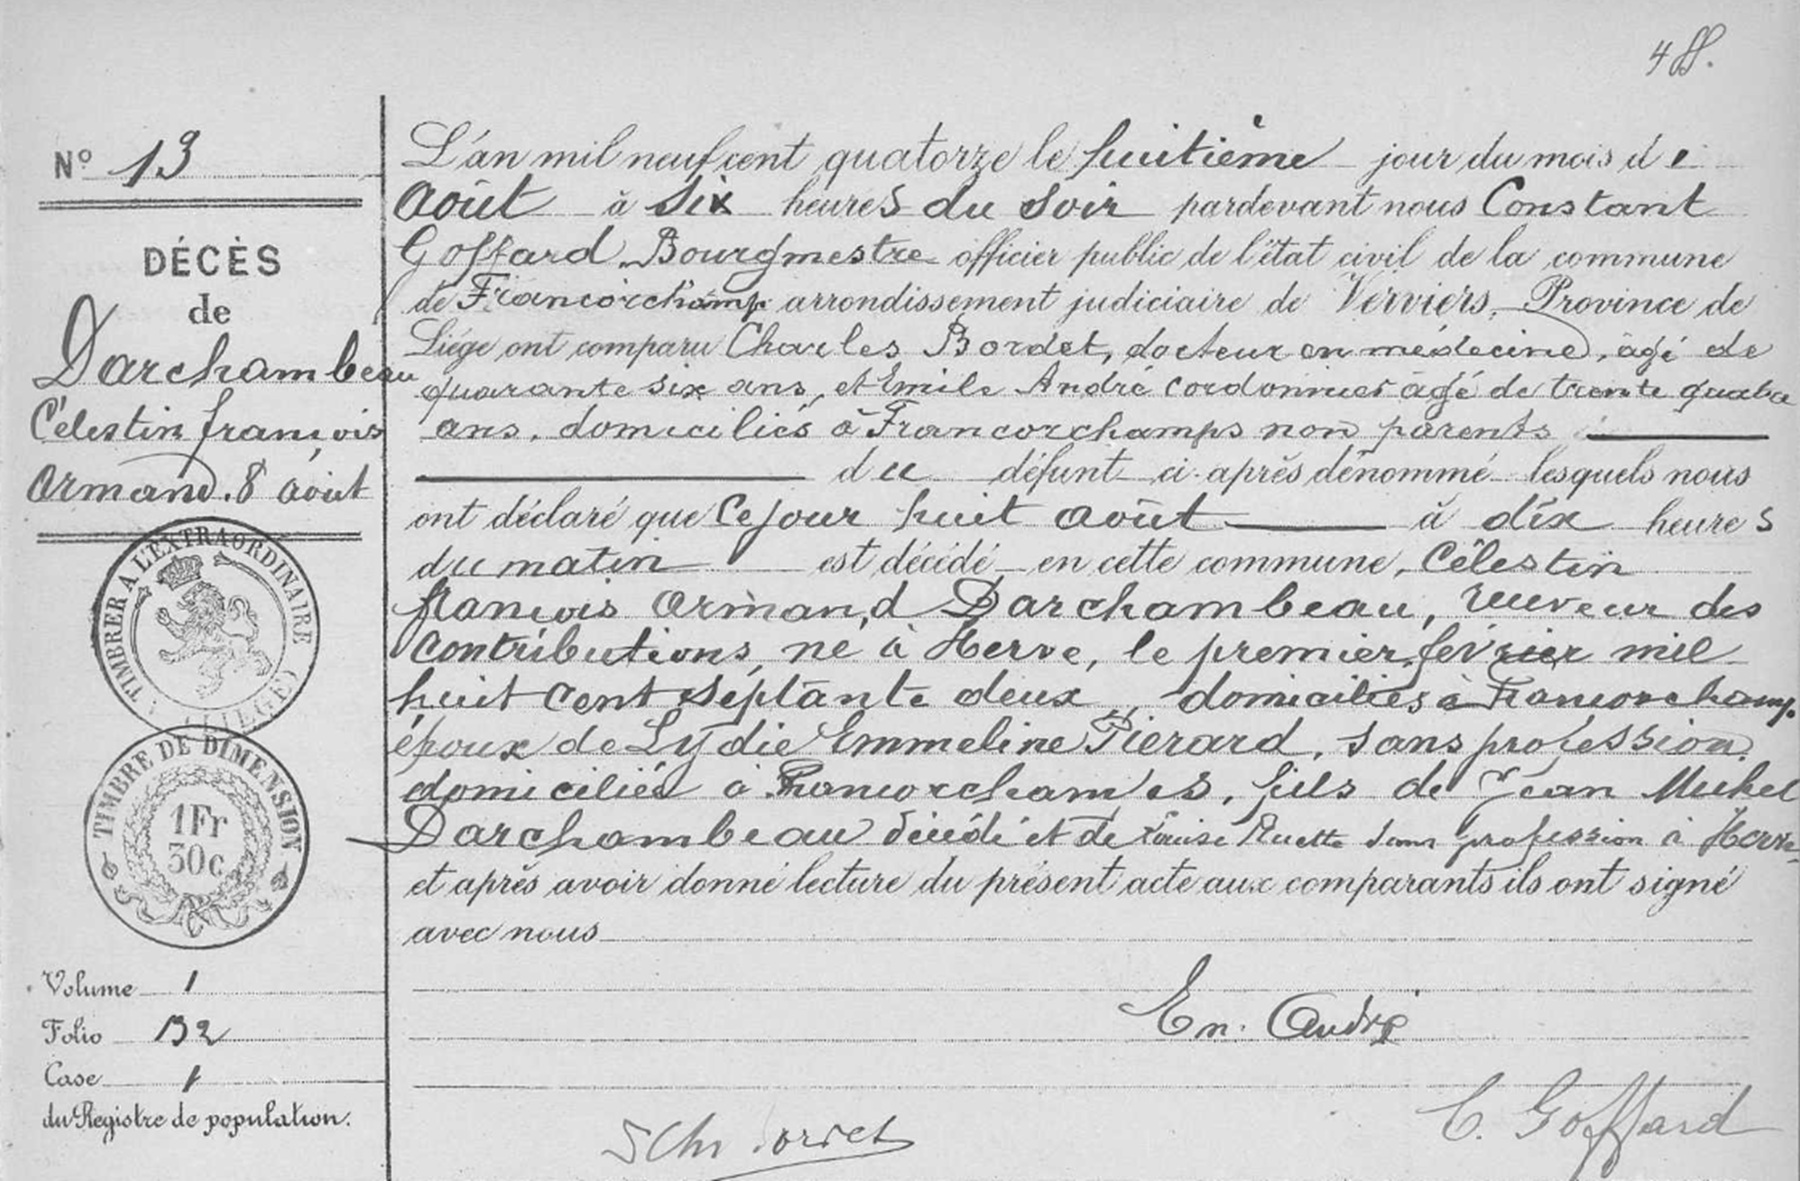 48.
Nº 13
DÉCÈS
de
Darchambeau
Célestin françois
Armand. 8 août
TIMBRER A L'EXTRAORDINAIRE
(LIEGE)
TIMBRE DE DIMENSION
1Fr
30c
Volume 1
Folio B2
Case 1
du Registre de population.
L'an mil neuf cent quatorze le huitième jour du mois de
Août à six heures du soir pardevant nous Constant
Goffard Bourgmestre officier public de l'état civil de la commune
de Francorchamps arrondissement judiciaire de Verviers, Province de
Liége ont comparu Charles Bordet, docteur en médecine, âgé de
quarante six ans, et Emile André cordonnier âgé de trente quatre
ans, domiciliés à Francorchamps non parents
du défunt ci-après dénommé lesquels nous
ont déclaré que ce jour huit août à dix heures
du matin est décédé en cette commune, Célestin
françois Armand Darchambeau, receveur des
contributions, né à Herve, le premier février mil
huit cent septante deux, domiciliés à Francorchamp.
époux de Lydie Emmeline Pierard, sans profession,
domiciliée à Francorchamps, fils de Jean Michel
Darchambeau décédé et de Louise Ruette sans profession à Herve
et après avoir donné lecture du présent acte aux comparants ils ont signé
avec nous
Em. André
C. Goffard